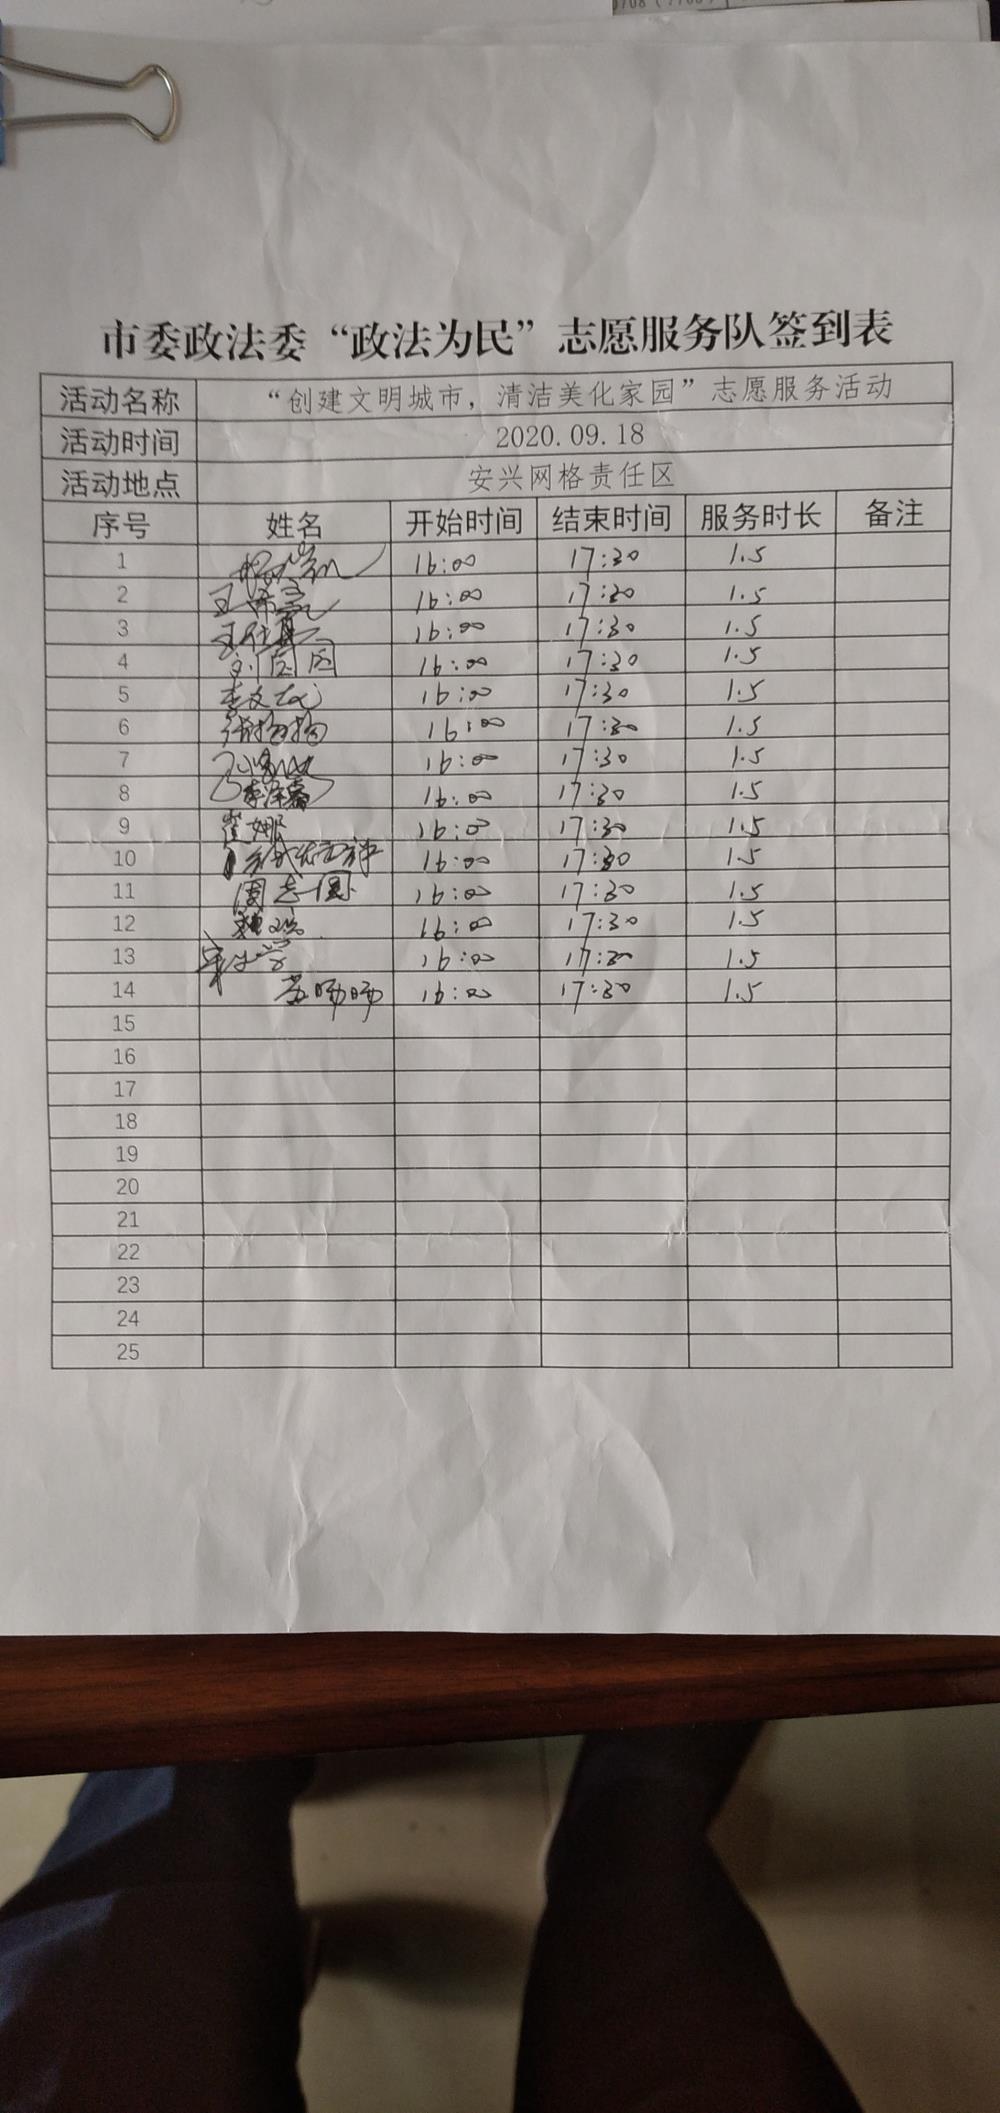 市委政法委“政法为民”志愿服务队签到表
活动名称 “创建文明城市，清洁美化家园”志愿服务活动
活动时间 2020.09.18
活动地点 安兴网格责任区
序号 姓名 开始时间 结束时间 服务时长 备注
1 16:00 17:30 1.5
2 16:00 17:30 1.5
3 16:00 17:30 1.5
4 刘园园 16:00 17:30 1.5
5 李文龙 16:00 17:30 1.5
6 16:00 17:30 1.5
7 16:00 17:30 1.5
8 16:00 17:30 1.5
9 崔娜 16:00 17:30 1.5
10 16:00 17:30 1.5
11 周志国 16:00 17:30 1.5
12 16:00 17:30 1.5
13 16:00 17:30 1.5
14 16:00 17:30 1.5
15
16
17
18
19
20
21
22
23
24
25